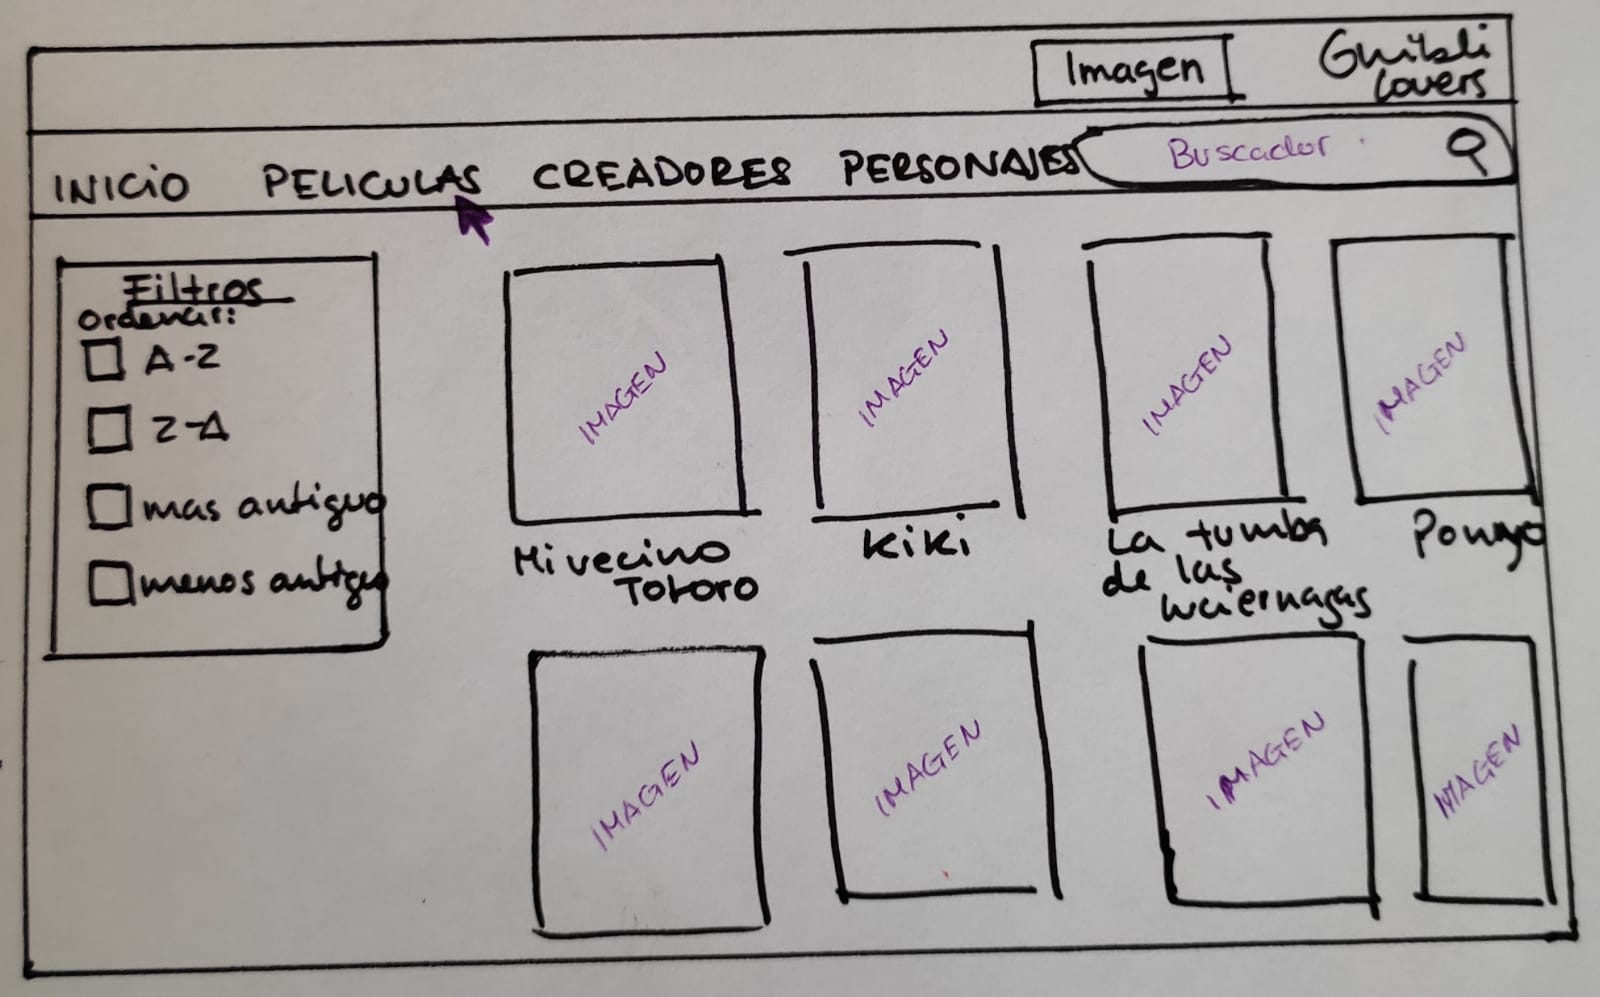 Imagen
Ghibli
Lovers
INICIO PELICULAS CREADORES PERSONAJES Buscador
Filtros
Ordenar:
A-Z
Z-A
mas antiguo
menos antiguo
IMAGEN IMAGEN IMAGEN IMAGEN
Mi vecino
Totoro
Kiki
La tumba
de las
luciernagas
Ponyo
IMAGEN IMAGEN IMAGEN IMAGEN